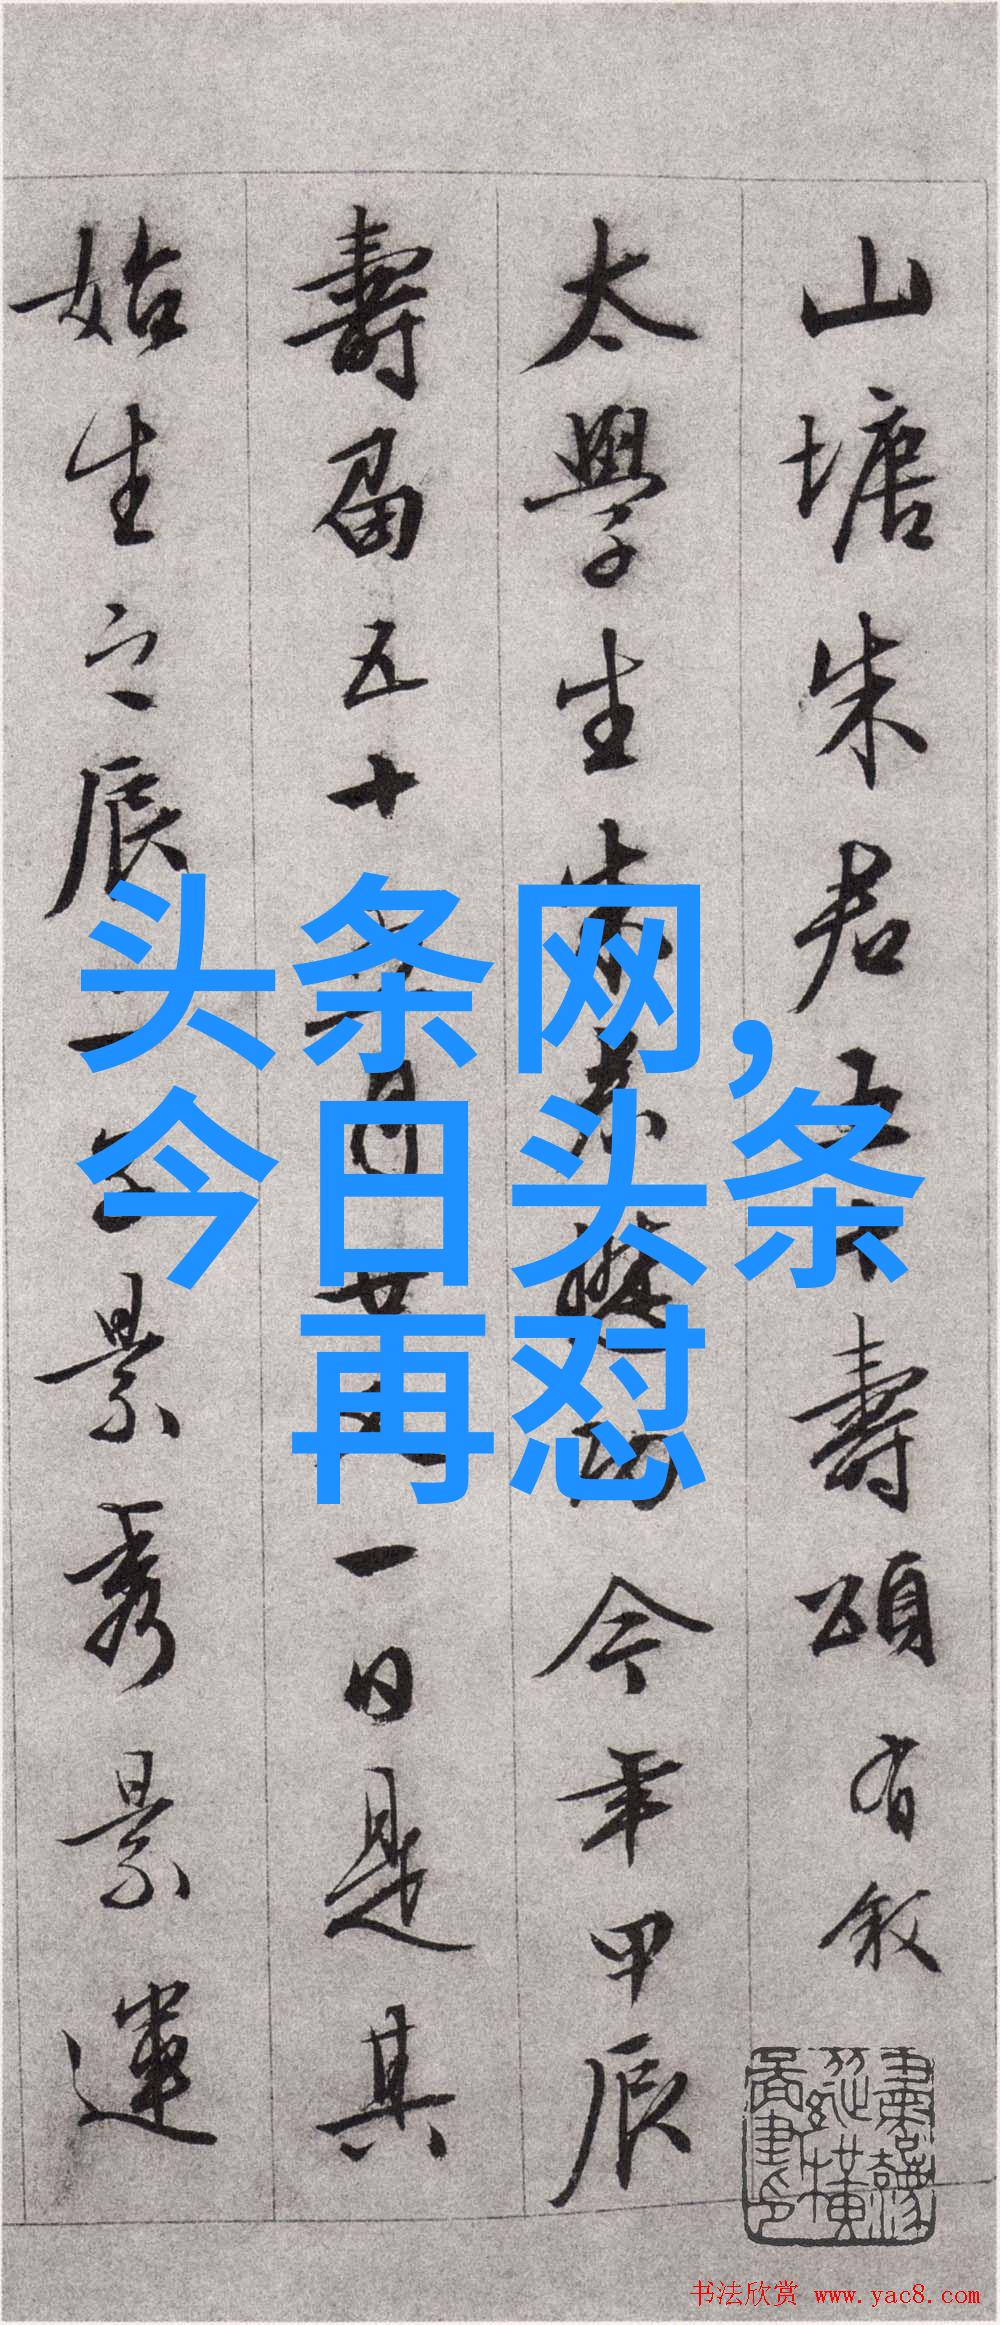 山塘朱君五十壽頌有敘
太學生朱君今年甲辰
壽五十月廿一日是其
始生之辰景秀景運
头条网,
今日头条
再怼
书法欣赏 www.yac8.com